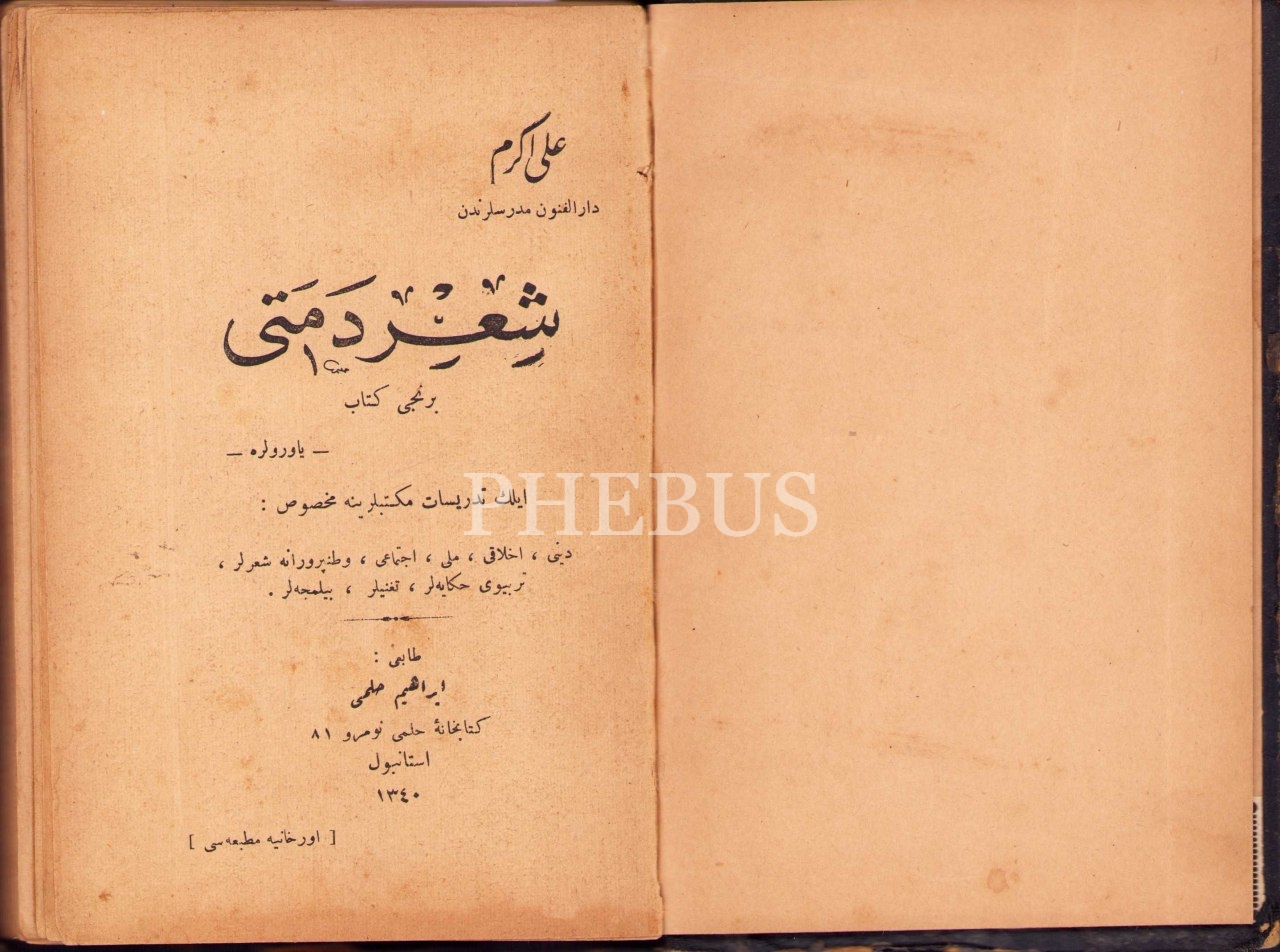 علی اكرم
دارالفنون مدرسلرندن
شعر دمتی
برنجی كتاب
— ياورولره —
ايلك تدريسات مكتبلرينه مخصوص :
دينی ، اخلاقی ، ملی ، اجتماعی ، وطنپرورانه شعرلر ،
تربيوی حكايه‌لر ، تغنيلر ، بيلمجه‌لر .
طابعی :
ابراهيم حلمی
كتابخانهٔ حلمی نومرو ٨١
استانبول
١٣٤٠
[ اورخانيه مطبعه‌سی ]
PHEBUS